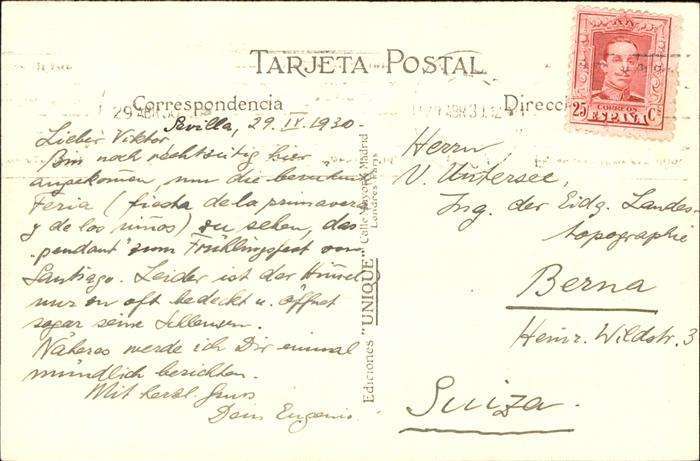 TARJETA POSTAL
Correspondencia
Sevilla, 29. IV. 1930.
Lieber Viktor
Bin noch rechtzeitig hier
angekommen, um die berühmte
Feria (fiesta de la primavera
y de los niños) zu sehen, das
pendant zum Frühlingsfest von
Santiago. Leider ist der Himmel
nur zu oft bedeckt u. öffnet
sogar seine Schleusen.
Näheres werde ich Dir einmal
mündlich berichten.
Mit herzl. Gruss
Dein Eugenio.
Ediciones "UNIQUE" Calle Mayor, 4, Madrid
Londres-Paris
Direcc
CORREOS
25 Cs
ESPAÑA
29 ABR 30
Herrn
V. Untersee,
Ing. der Eidg. Landes-
topographie
Berna
Heinr. Wildstr. 3
Suiza.